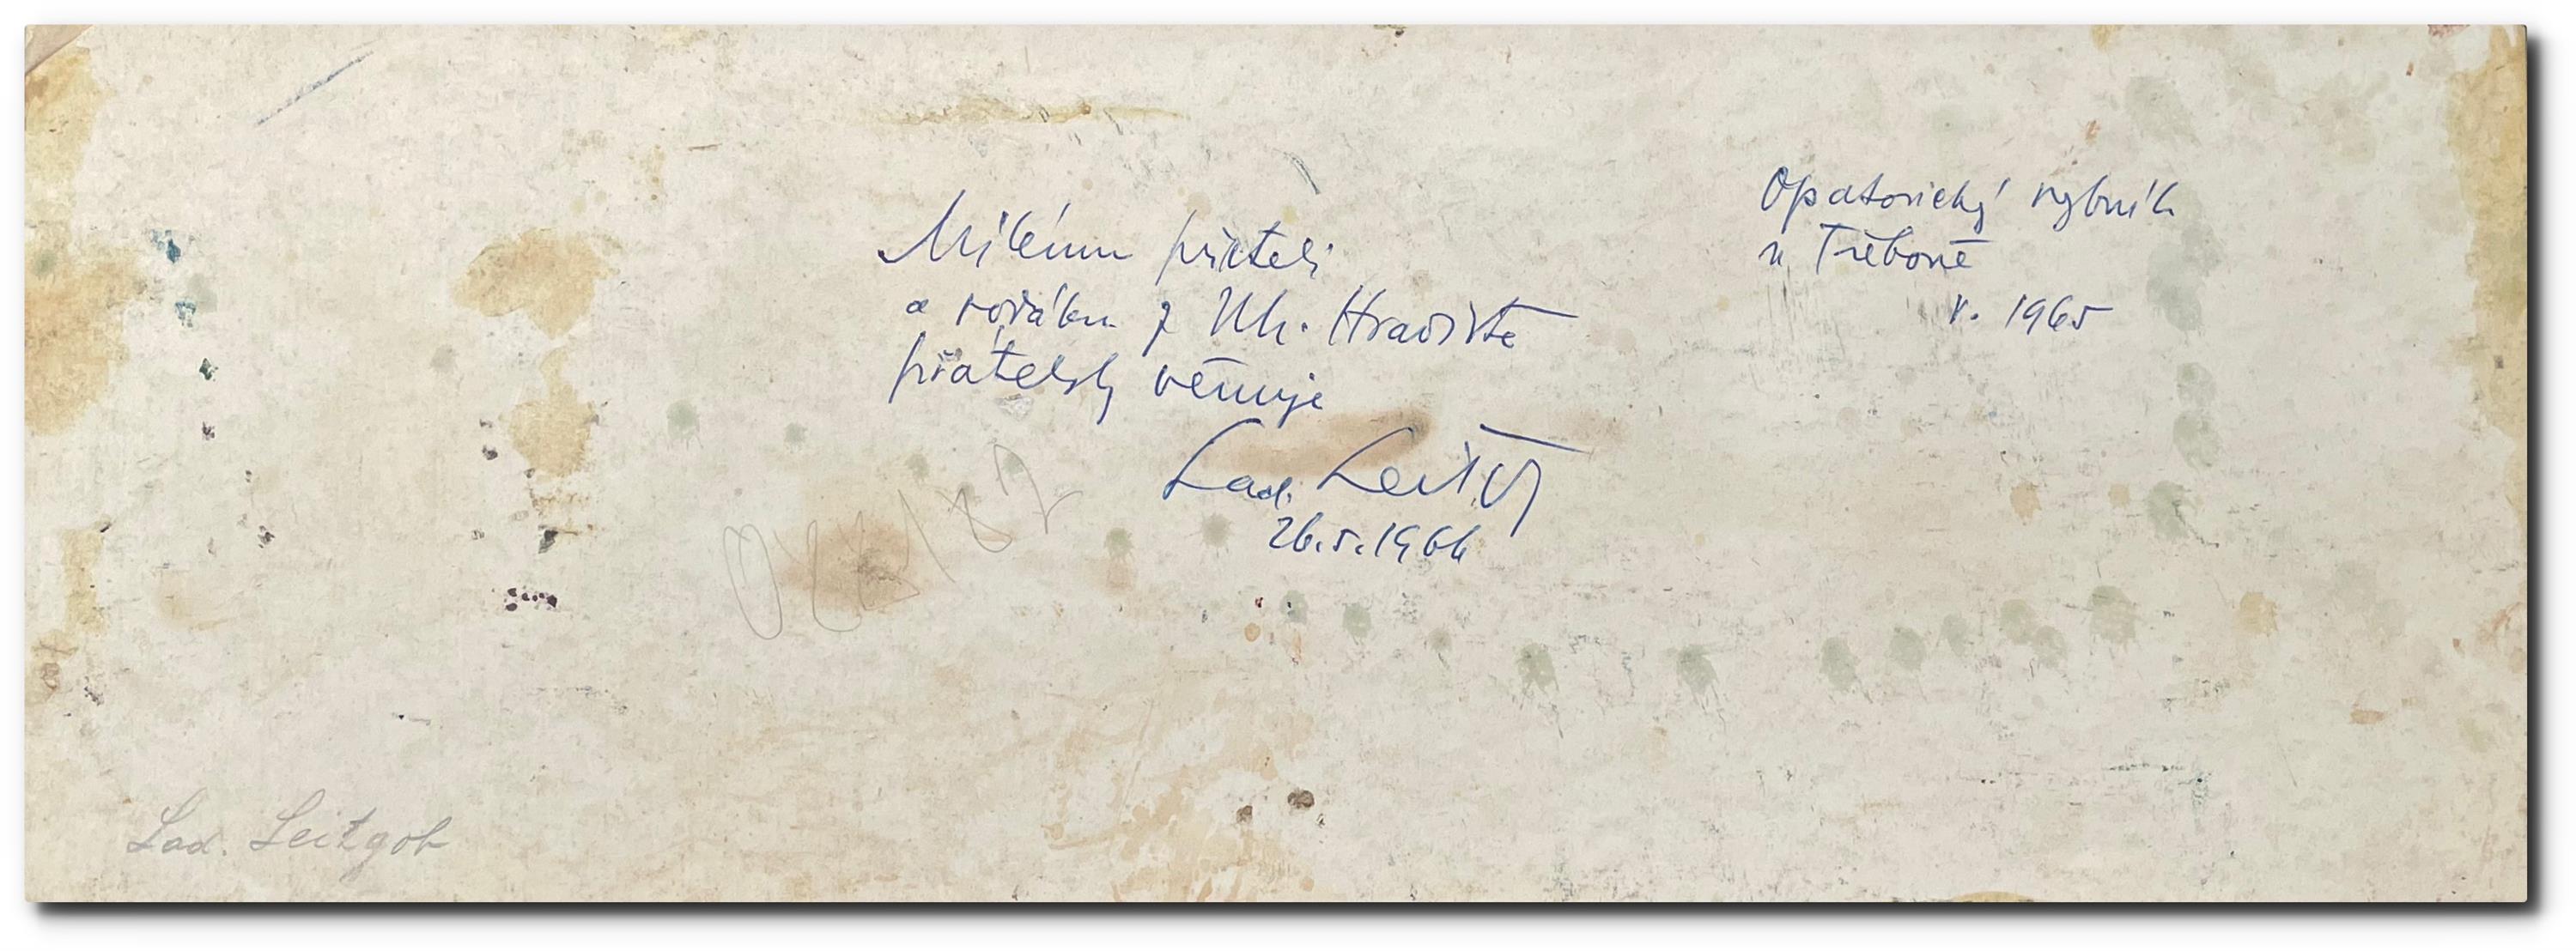 Milému příteli
a rodáku z Uh. Hradiště
přátelsky věnuje
Lad.
26.5.1966
Opatovický rybník
u Třeboně
r. 1965
Lad. Leitgob